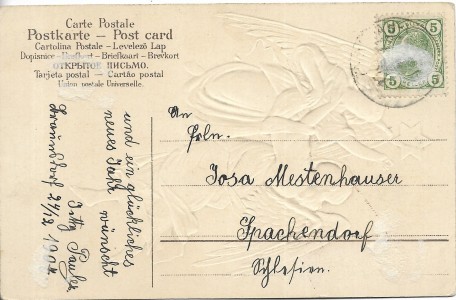 Carte Postale
Postkarte — Post card
Cartolina Postale – Levelező Lap
Dopisnice – Brefkort – Briefkaart – Brevkort
ОТКРЫТОЕ ПИСЬМО.
Tarjeta postal – Cartão postal
Union postale Universelle.
5 5
5 5
An
Frln.
Josa Mestenhauser
Spachendorf
Schlesien.
und ein glückliches
neues Jahr
wünscht
24/12 190